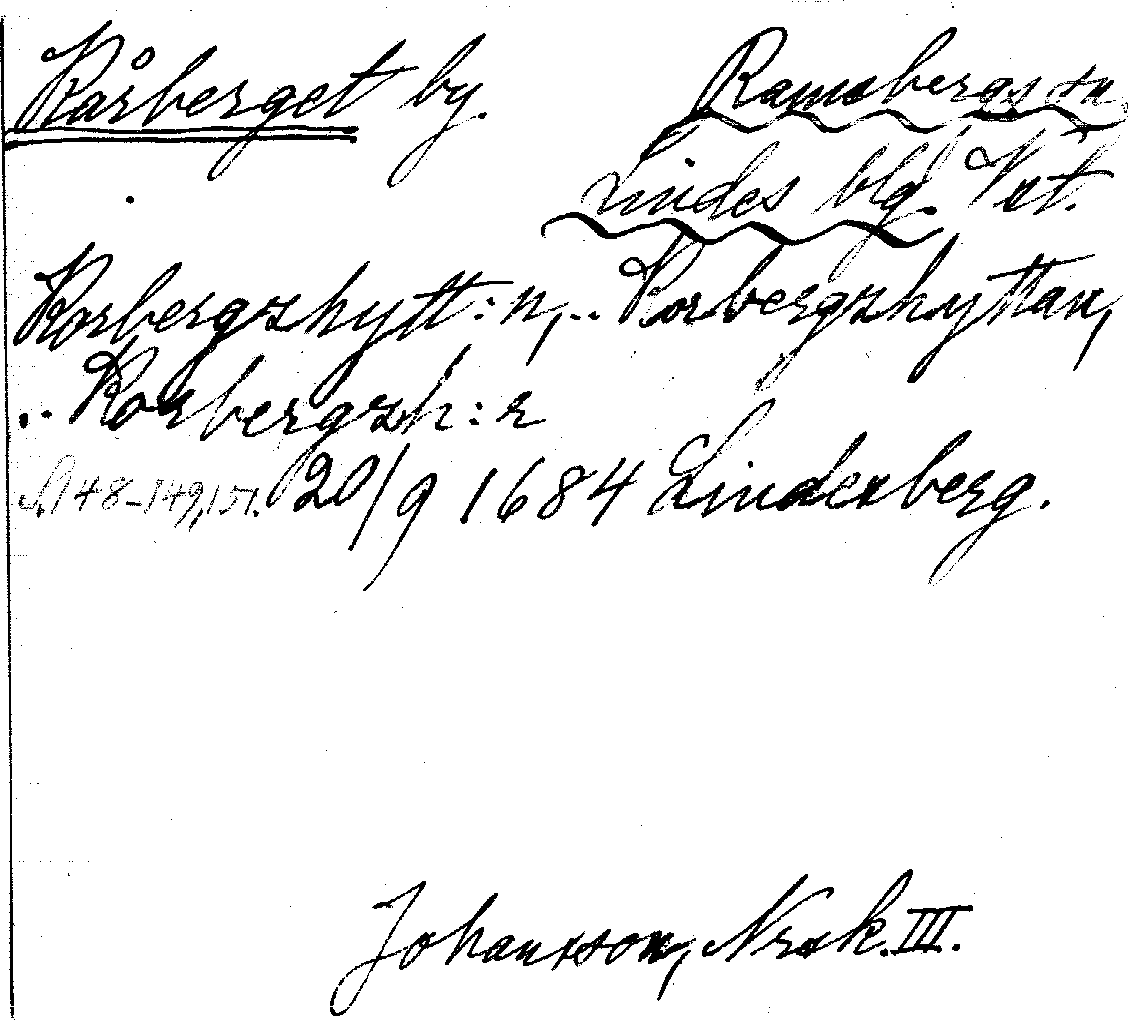 Kårberget by. Ramsbergs sn
Lindes blg. Vst.
Korbergshytt:n, .. Korbergshyttan,
.. Korbergsh:n
s. 148-149, 151. 20/9 1684 Lindesberg.
Johansson, Nrsk. III.